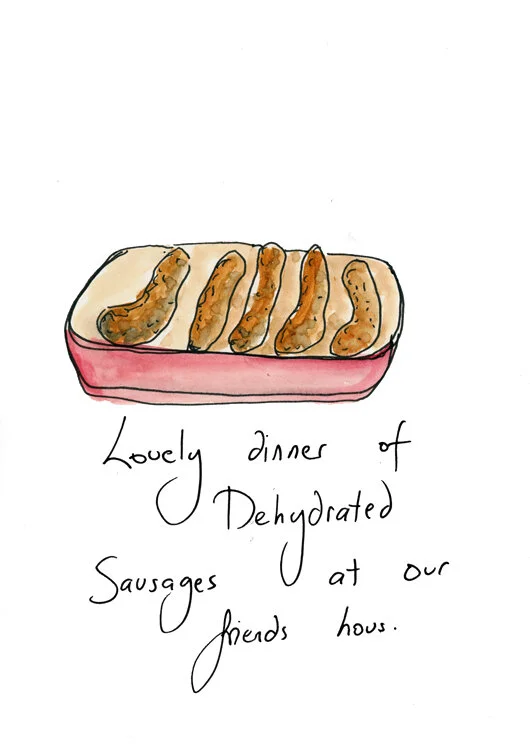 Lovely dinner of
Dehydrated
Sausages at our
friends hous.